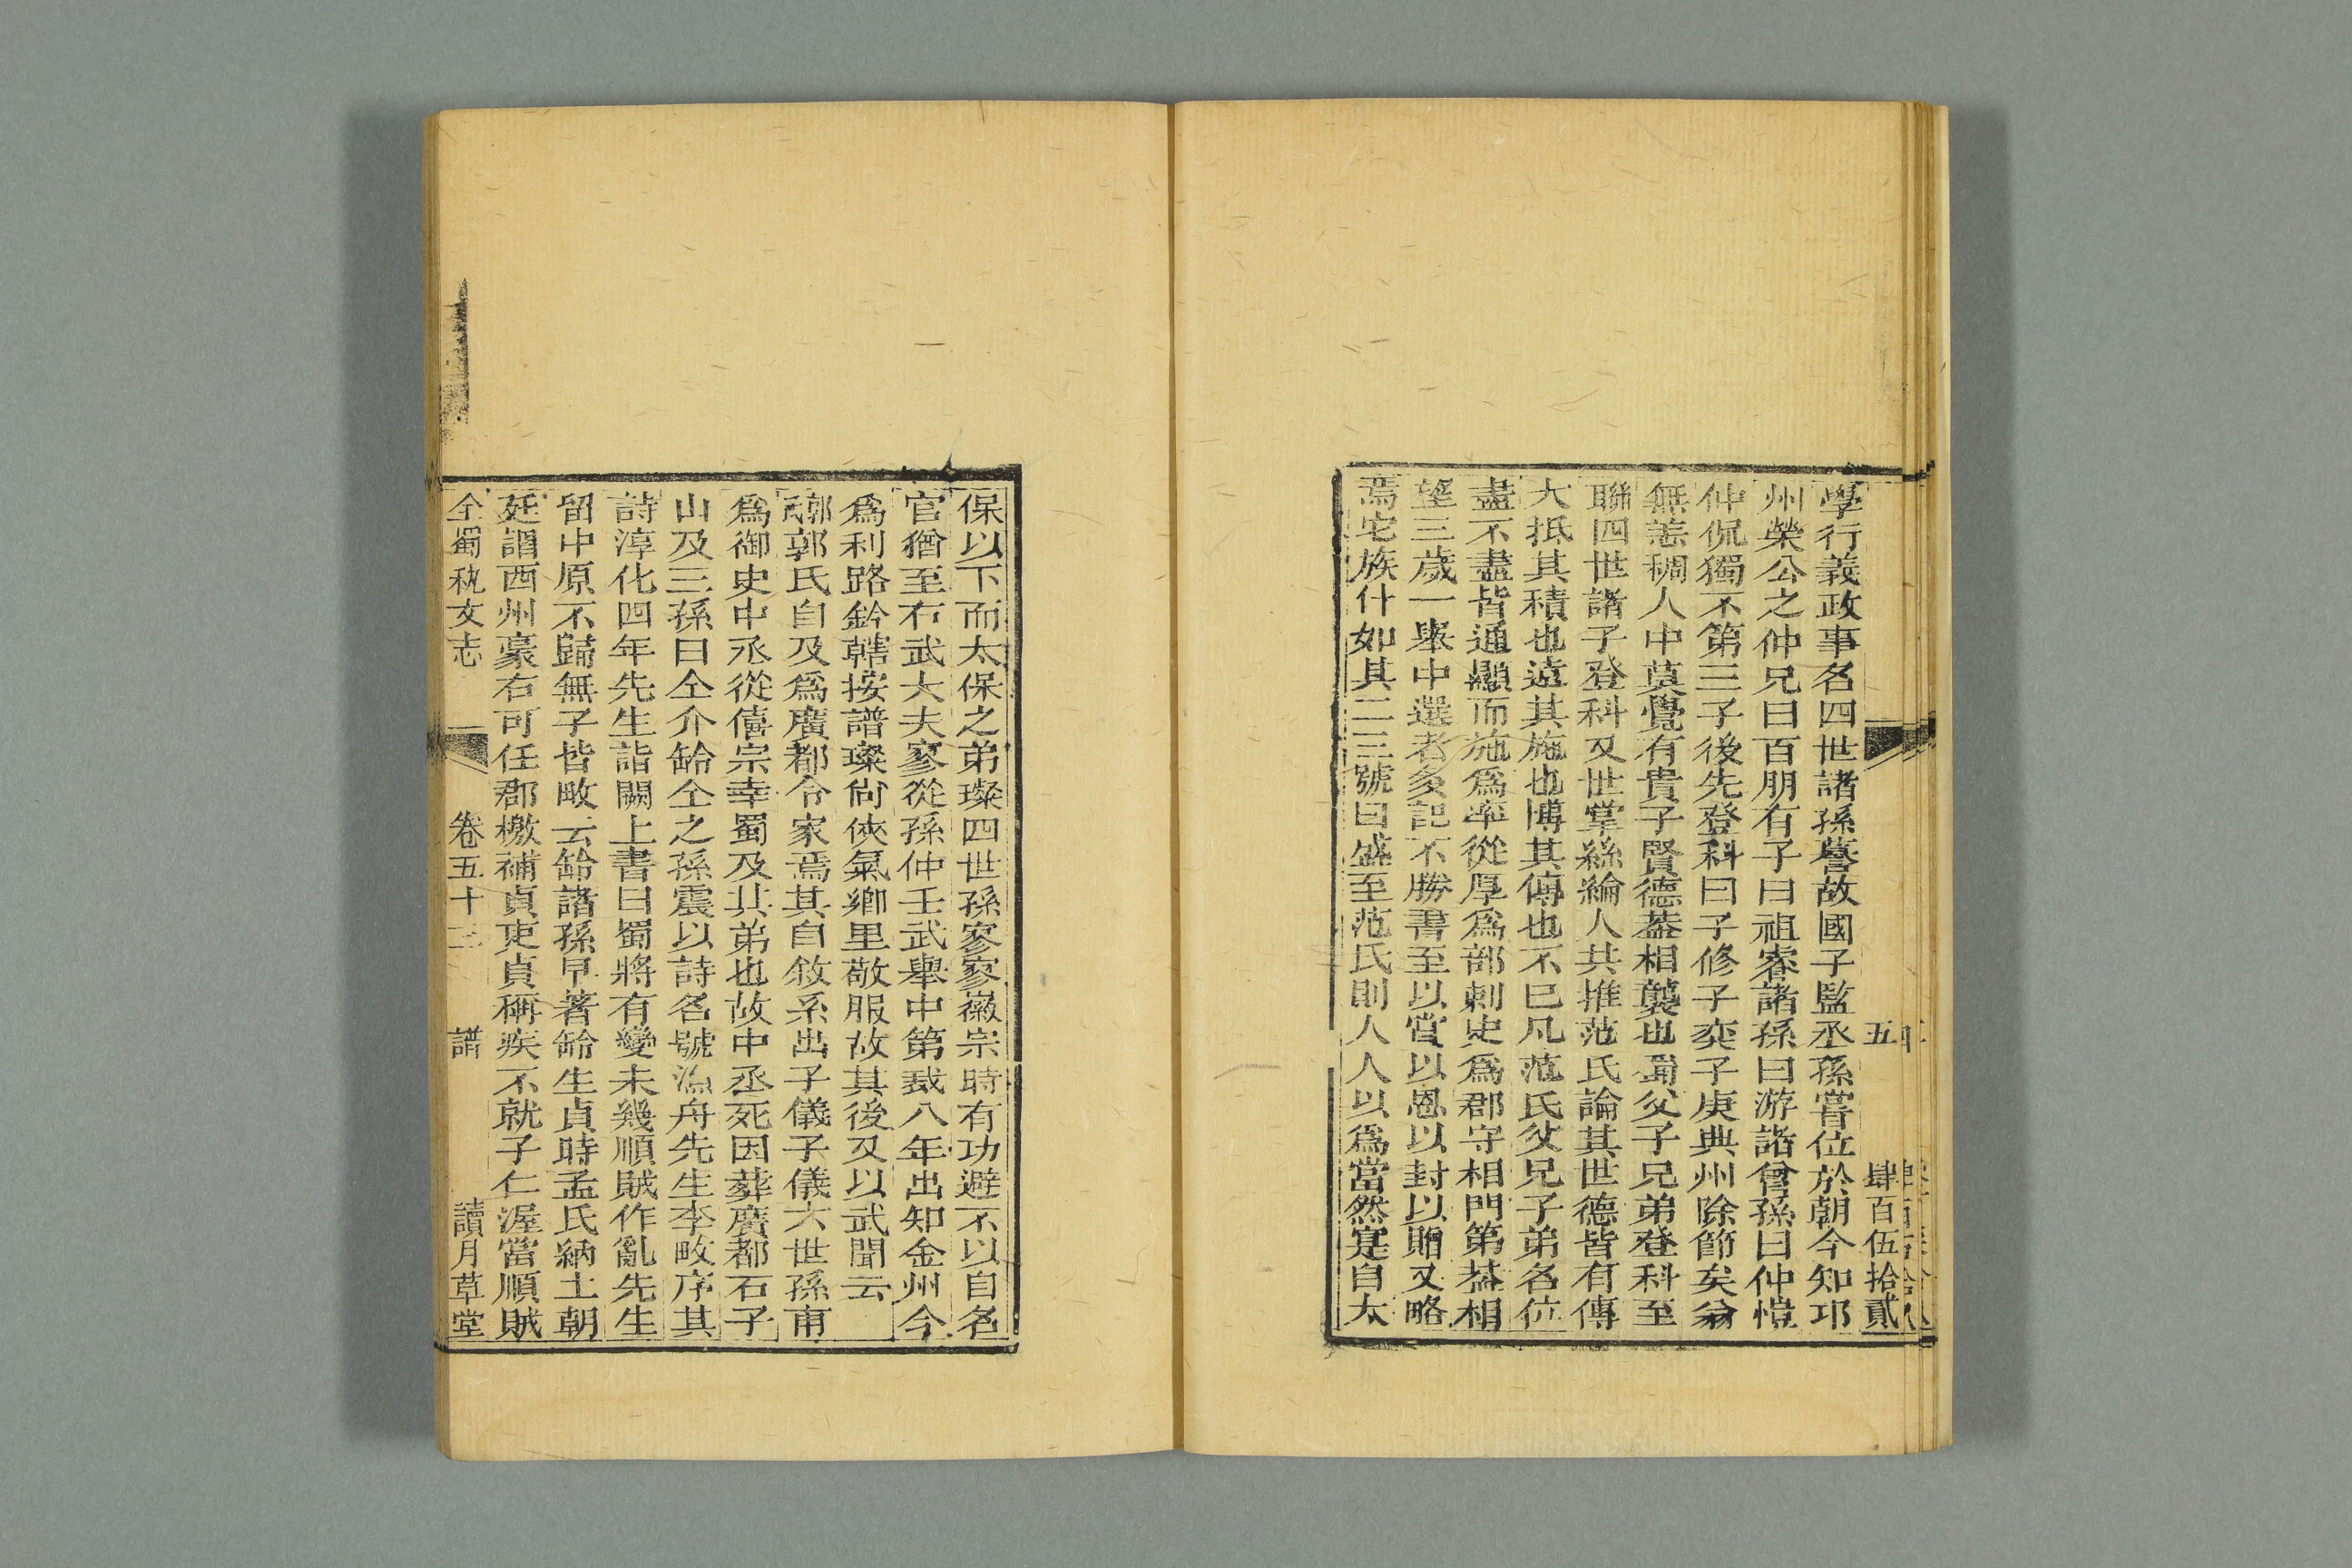 五
肆百伍拾貳
學行義政事名四世諸孫蓍故國子監丞孫甞位於朝今知邛
州榮公之仲兄曰百朋有子曰祖睿諸孫曰游諸曾孫曰仲愷
仲侃獨不第三子後先登科曰子修子奕子庚典州除節矣翁
無恙稠人中莫覺有貴子賢德葢相襲也蜀父子兄弟登科至
聯四世諸子登科又世掌絲綸人共推范氏論其世德皆有傳
大抵其積也遠其施也博其傳也不已凡范氏父兄子弟名位
盡不盡皆通顯而施爲率從厚爲部剌史爲郡守相門第葢相
望三歲一舉中選者多記不勝書至以賞以恩以封以贈又略
焉宅族什如其二三號曰盛至范氏則人人以爲當然寔自太
保以下而太保之弟璨四世孫寥寥徽宗時有功避不以自名
官猶至右武大夫寥從孫仲壬武舉中第裁八年出知金州今
爲利路鈐轄按譜璨尙俠氣鄉里敬服故其後又以武聞云
郭氏自及爲廣都令家焉其自敘系出子儀子儀六世孫甫
爲御史中丞從僖宗幸蜀及其弟也故中丞死因葬廣都石子
山及三孫曰仝介䶢仝之孫震以詩名號漁舟先生李畋序其
詩淳化四年先生詣闕上書曰蜀將有變未幾順賊作亂先生
留中原不歸無子皆畋云䶢諸孫早著䶢生貞時孟氏納土朝
廷謂西州豪右可任郡檄補貞吏貞稱疾不就子仁渥當順賊
全蜀秇文志
卷五十三
譜
讀月草堂